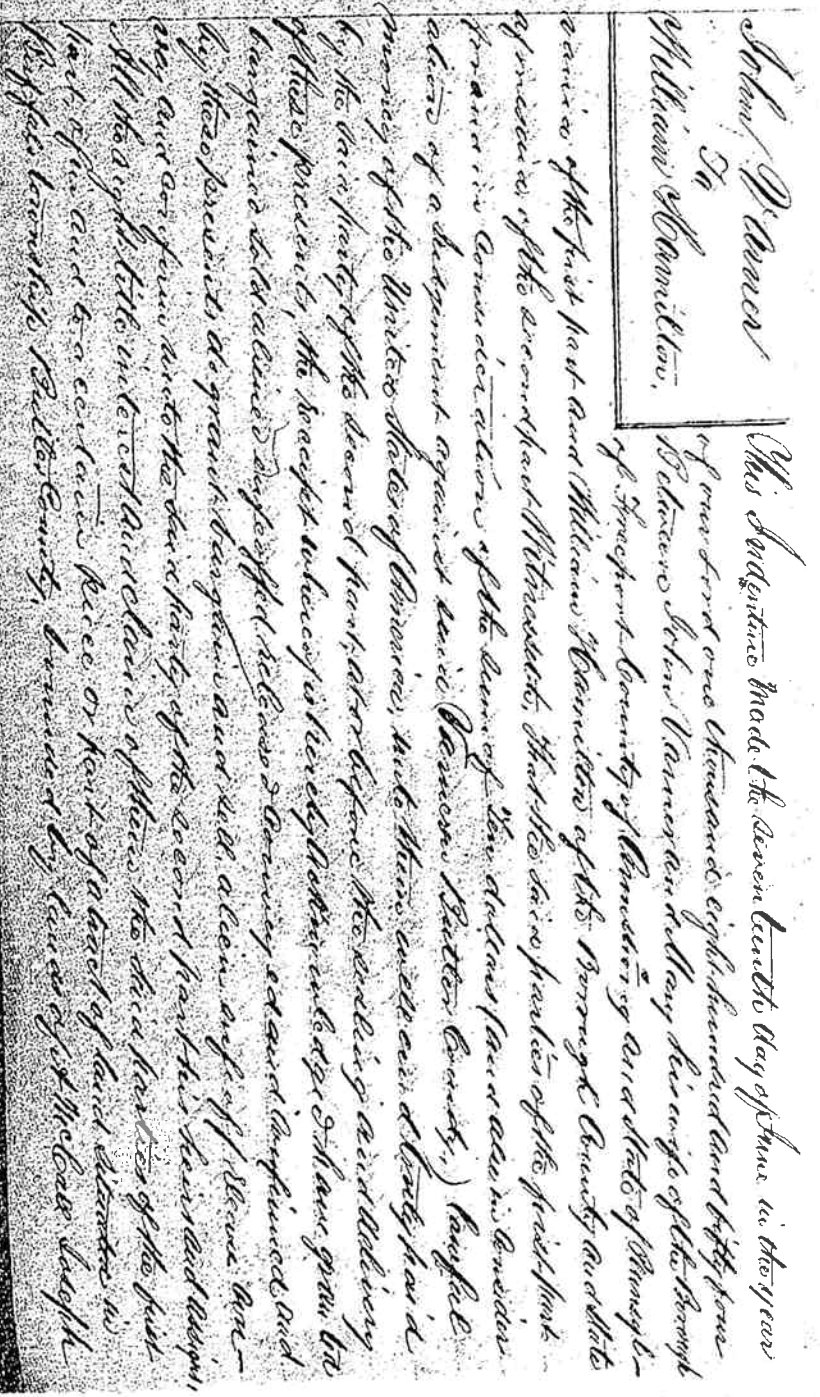 John Varner
To
William Hamilton.
This Indenture Made the seventeenth day of June in the year
of our Lord one thousand eight hundred and fifty four
Between John Varner and Mary his wife of the Borough
of Freeport County of Armstrong and State of Pensyl-
vania of the first part and William Hamilton of the Borough County and State
aforesaid of the second part Witnesseth, That the said parties of the first part
for and in Consideration of the sum of Ten dolars (and also in Consider-
ation of a Judgement against said Butler County,) lawful
money of the United States of America, unto them well and truly paid
by the said party of the second part, at or before the sealing and delivery
of these presents, the receipt whereof is hereby acknowledged have granted
bargained sold aliened enfeoffed released Conveyed and Confirmed and
by these presents do grant bargain and sell, alien enfeoff release con-
vey and Confirm unto the said party of the second part his heirs and assigns,
All the right title interest and claim of them the said parties of the first
part, of in and to a certain piece or part of a tract of land situate in
Buffalo township Butler County, bounded by lands of McCall Joseph